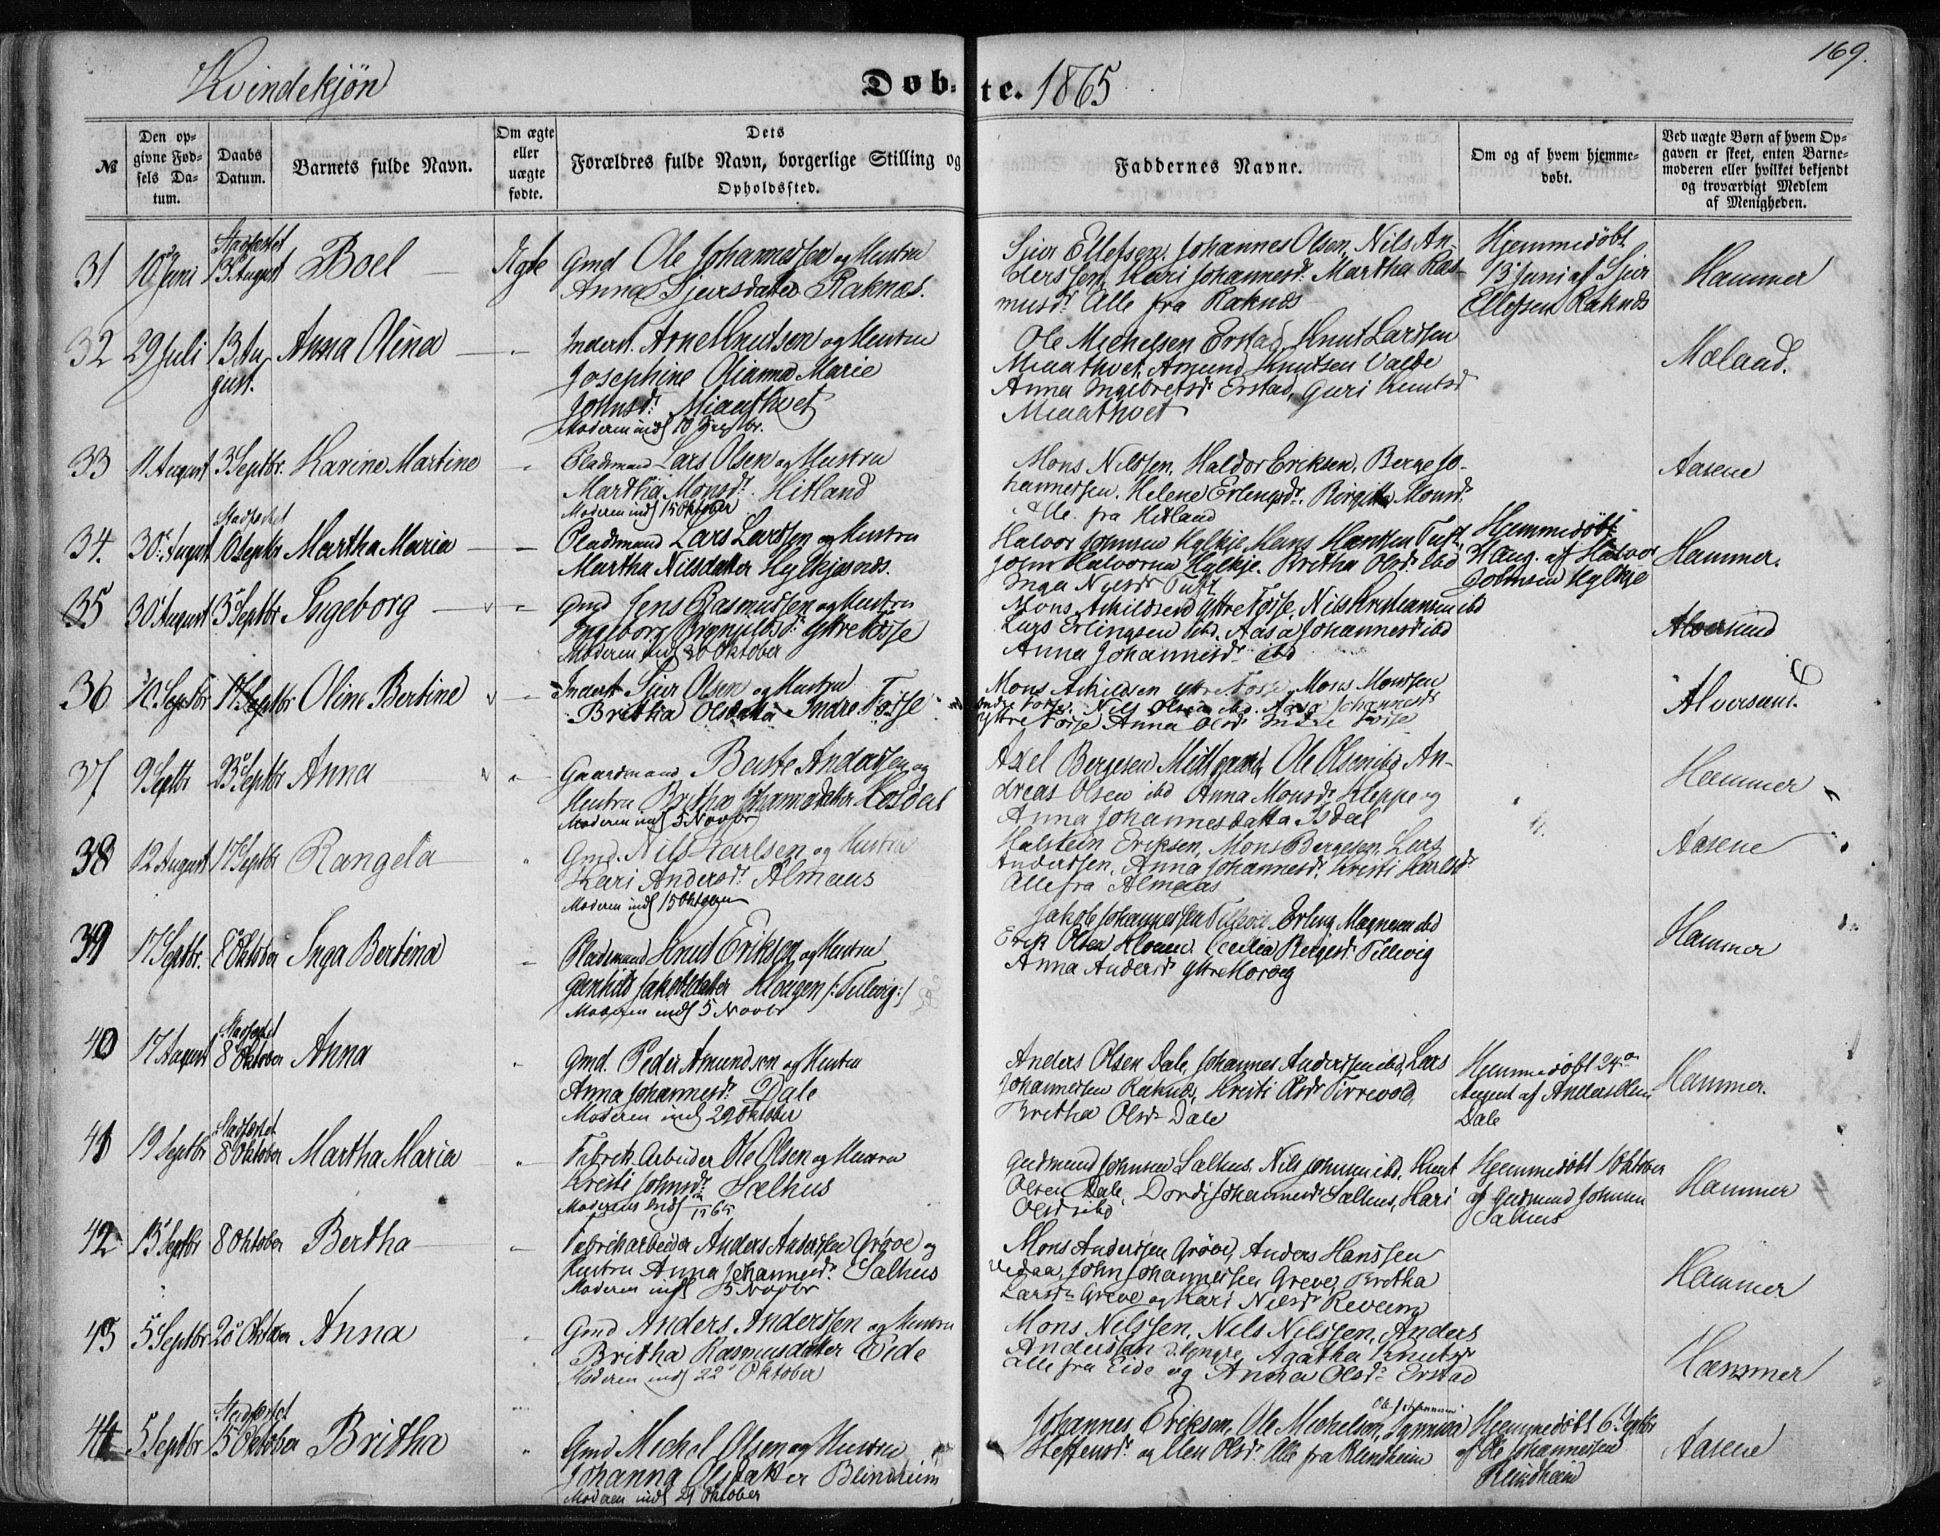 169.
Kvindekjön
Døb-te. 1865
№
Den opgivne Fødsels Datum.
Daabs Datum.
Barnets fulde Navn.
Om ægte eller uægte fødte.
Dets Forældres fulde Navn, borgerlige Stilling og Opholdssted.
Faddernes Navne.
Om og af hvem hjemmedøbt.
Ved uægte Børn af hvem Opgaven er skeet, enten Barnemoderen eller hvilket bekjendt og troværdigt Medlem af Menigheden.
31 10 Juni Stadfæstet 13 August Boel Ægte
Gmd Ole Johannessen og Hustru
Anna Sjursdatter Raknæs.
Sjur Ellefsen, Johannes Olsen, Nils An-
derssen, Kari Johannesdr Martha Ras-
musdr Alle fra Raknæs
Hjemmedøbt
13 Juni af Sjur
Ellefsen Raknæs
Hammer
32 29 Juli 13 Au
gust.
Anna Olina
Inderst. Arne Knutsen og Hustru
Josephine Marie
Johnsdr Miaathvet
Ole Michelsen Erstad, Knut Larssen
Miaathvet, Knutsen
Anna Ingebretsdr Erstad, Guri Knutsdr
Miaathvet
Mæland.
33 11 August 3 Septbr. Karine Martine
Pladsmand Lars Olsen og Hustru
Martha Monsdr. Hitland
Moderen indl 15 Oktober
Mons Nilssen, Haldor Eriksen, Berge Jo-
hannessen, Helene Erlingsdr, Birgitta Monsdr
Alle fra Hitland
Aasene
34. 30 August 10 Septbr Martha Maria
Pladsmand Lars Larssen og Hustru
Martha Nilsdatter Hylkjesnes.
Halvor Johnsen Hylkje, Mons Hanssen Tuft,
John Halvorsen Hylkje, Brita Olsdr ibd
Inga Tuft
Hjemmedøbt
af Halvor
Johnsen Hylkje
Hammer.
35 30 August Septbr Ingeborg
Gmd Jens Rasmussen og Hustru
Ingeborg Brynildsdr Ytre Fosse
Moderen indl Oktober
Mons Askildsen Ytre Fosse, Nils Kristiansen ibd
Lars Erlingsen ibd, Aasa Johannesdr ibd
Anna Johannesdr ibd
Alversund
36 10 Septbr 17 Septbr Oline Bertine
Inderst Sjur Olsen og Hustru
Britha Olsdatter Indre Fosse
Mons Askildsen Ytre Fosse, Mons Monssen
Indre Fosse, Nils Olsen ibd, Aasa Johannesdr
Ytre Fosse Anna Olsdr Indre Fosse
Alversund.
37 9 Septbr Septbr Anna
Gaardmand Andersen og
Hustru Britha Johannesdatter
Moderen indl 5 Novbr
Axel Bergesen Midtgaard, Ole Olsen ibd An-
dreas Olsen ibd Anna Monsdr Kleppe og
Anna Johannesdatter Isdal
Hammer
38 12 August 17 Septbr Rangela
Gmd. Nils Karlsen og Hustru
Kari Andersdr. Almaas
Moderen indl 15 Oktober
Halstein Eriksen, Mons Bergesen, Lars
Anderssen, Anna Johannesdr Kristi Karlsdr
Alle fra Almaas
Aasene
39 17 Septbr. 8 Oktober Inga Bertina
Pladsmand Knut Eriksen og Hustru
Gunhild Jakobsdatter Haugen /:Tellevig:/
Moderen indl 5 Novbr
Jakob Johannessen Tellevig, Erling Magnesen ibd
Erik Olsen, Cecilia Bergesdr Tellevig
Anna Andersdr Ytre Morvig
Hammer
40 17 August Stadfæstet 8 Oktober Anna
Gmd. Peder Amundsen og Hustru
Anna Johannesdr Dale
Moderen indl 29 Oktober
Anders Olsen Dale, Johannes Anderssen ibd, Lars
Johannessen Raknæs, Kristi Olsdr
Britha Olsdr Dale
Hjemmedøbt 24
August af Anders Olsen
Dale
Hammer.
41 19 Septbr Stadfæstet 8 Oktober Martha Maria
Fabrik Arbeider Ole Olsen og Hustru
Kristi Johnsdr Salhus
Gudmund Johnsen Salhus, Nils Johnsen ibd, Knut
Olsen Dale, Dordi Johannesdr Salhus, Kari
Olsdr ibd
Hjemmedøbt 1 Oktober
af Gudmund Johnsen
Salhus
Hammer
42 13 Septbr 8 Oktober Bertha
Fabrikarbeider Anders Anderssen Gröve og
Hustru Anna Johannesdr. Salhus
Moderen indl 5 Novbr
Mons Anderssen Gröve, Anders Hanssen
Vedaa, John Johannessen Greve, Britha
Larsdr Greve og Kari Nilsdr
Hammer
43 5 Septbr 20 Oktober Anna
Gmd Anders Anderssen og Hustru
Britha Rasmusdatter Eide
Moderen indl 22 Oktober
Mons Nilssen, Nils Nilssen, Anders
Anderssen d yngre, Agatha Knutsdr
alle fra Eide og Anna Olsdr Erstad
Hammer
44 5 Septbr Stadfæstet 15 Oktober Britha
Gmd Michel Olsen og Hustru
Johanna Olsdatter Blindheim
Moderen indl 29 Oktober
Johannes Eriksen, Ole Michelsen,
Steffensdr og Olsdr Alle fra Blindheim
Hjemmedøbt 6 Septbr
af Ole Johannessen
Blindheim
Aasene